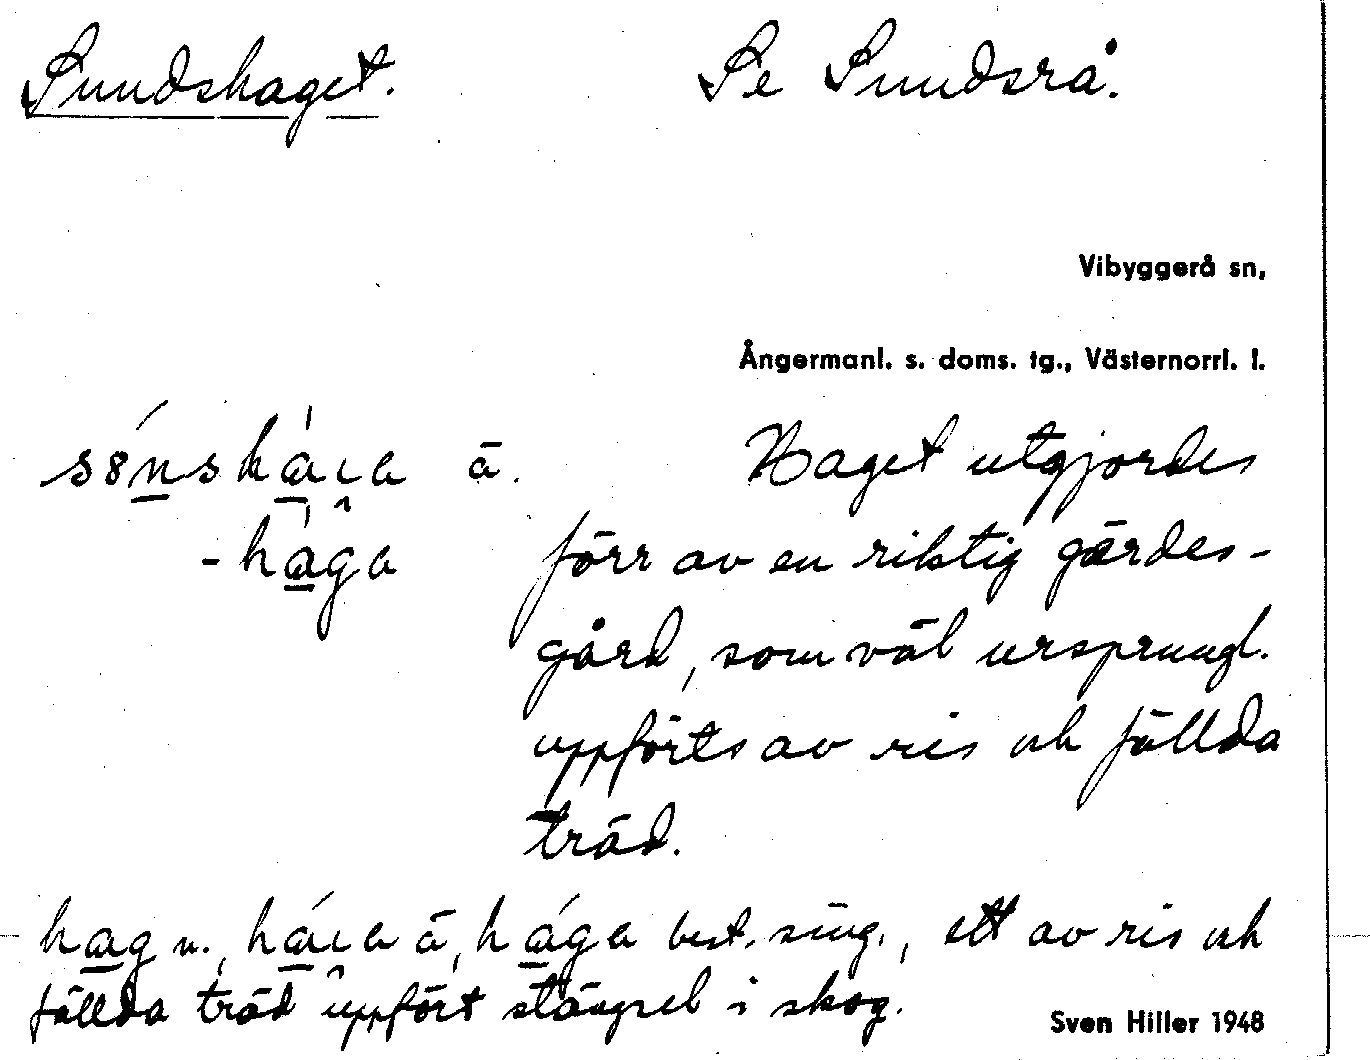 Sundshaget. Se Sundsrå.
Vibyggerå sn,
Ångermanl. s. doms. tg., Västernorrl. l.
Haget utgjordes
-haga förr av en riktig gärdes-
gård, som väl ursprungl.
uppförts av ris och fällda
träd.
hag n., haga best. sing., ett av ris och
fällda träd uppfört stängsel i skog.
Sven Hiller 1948